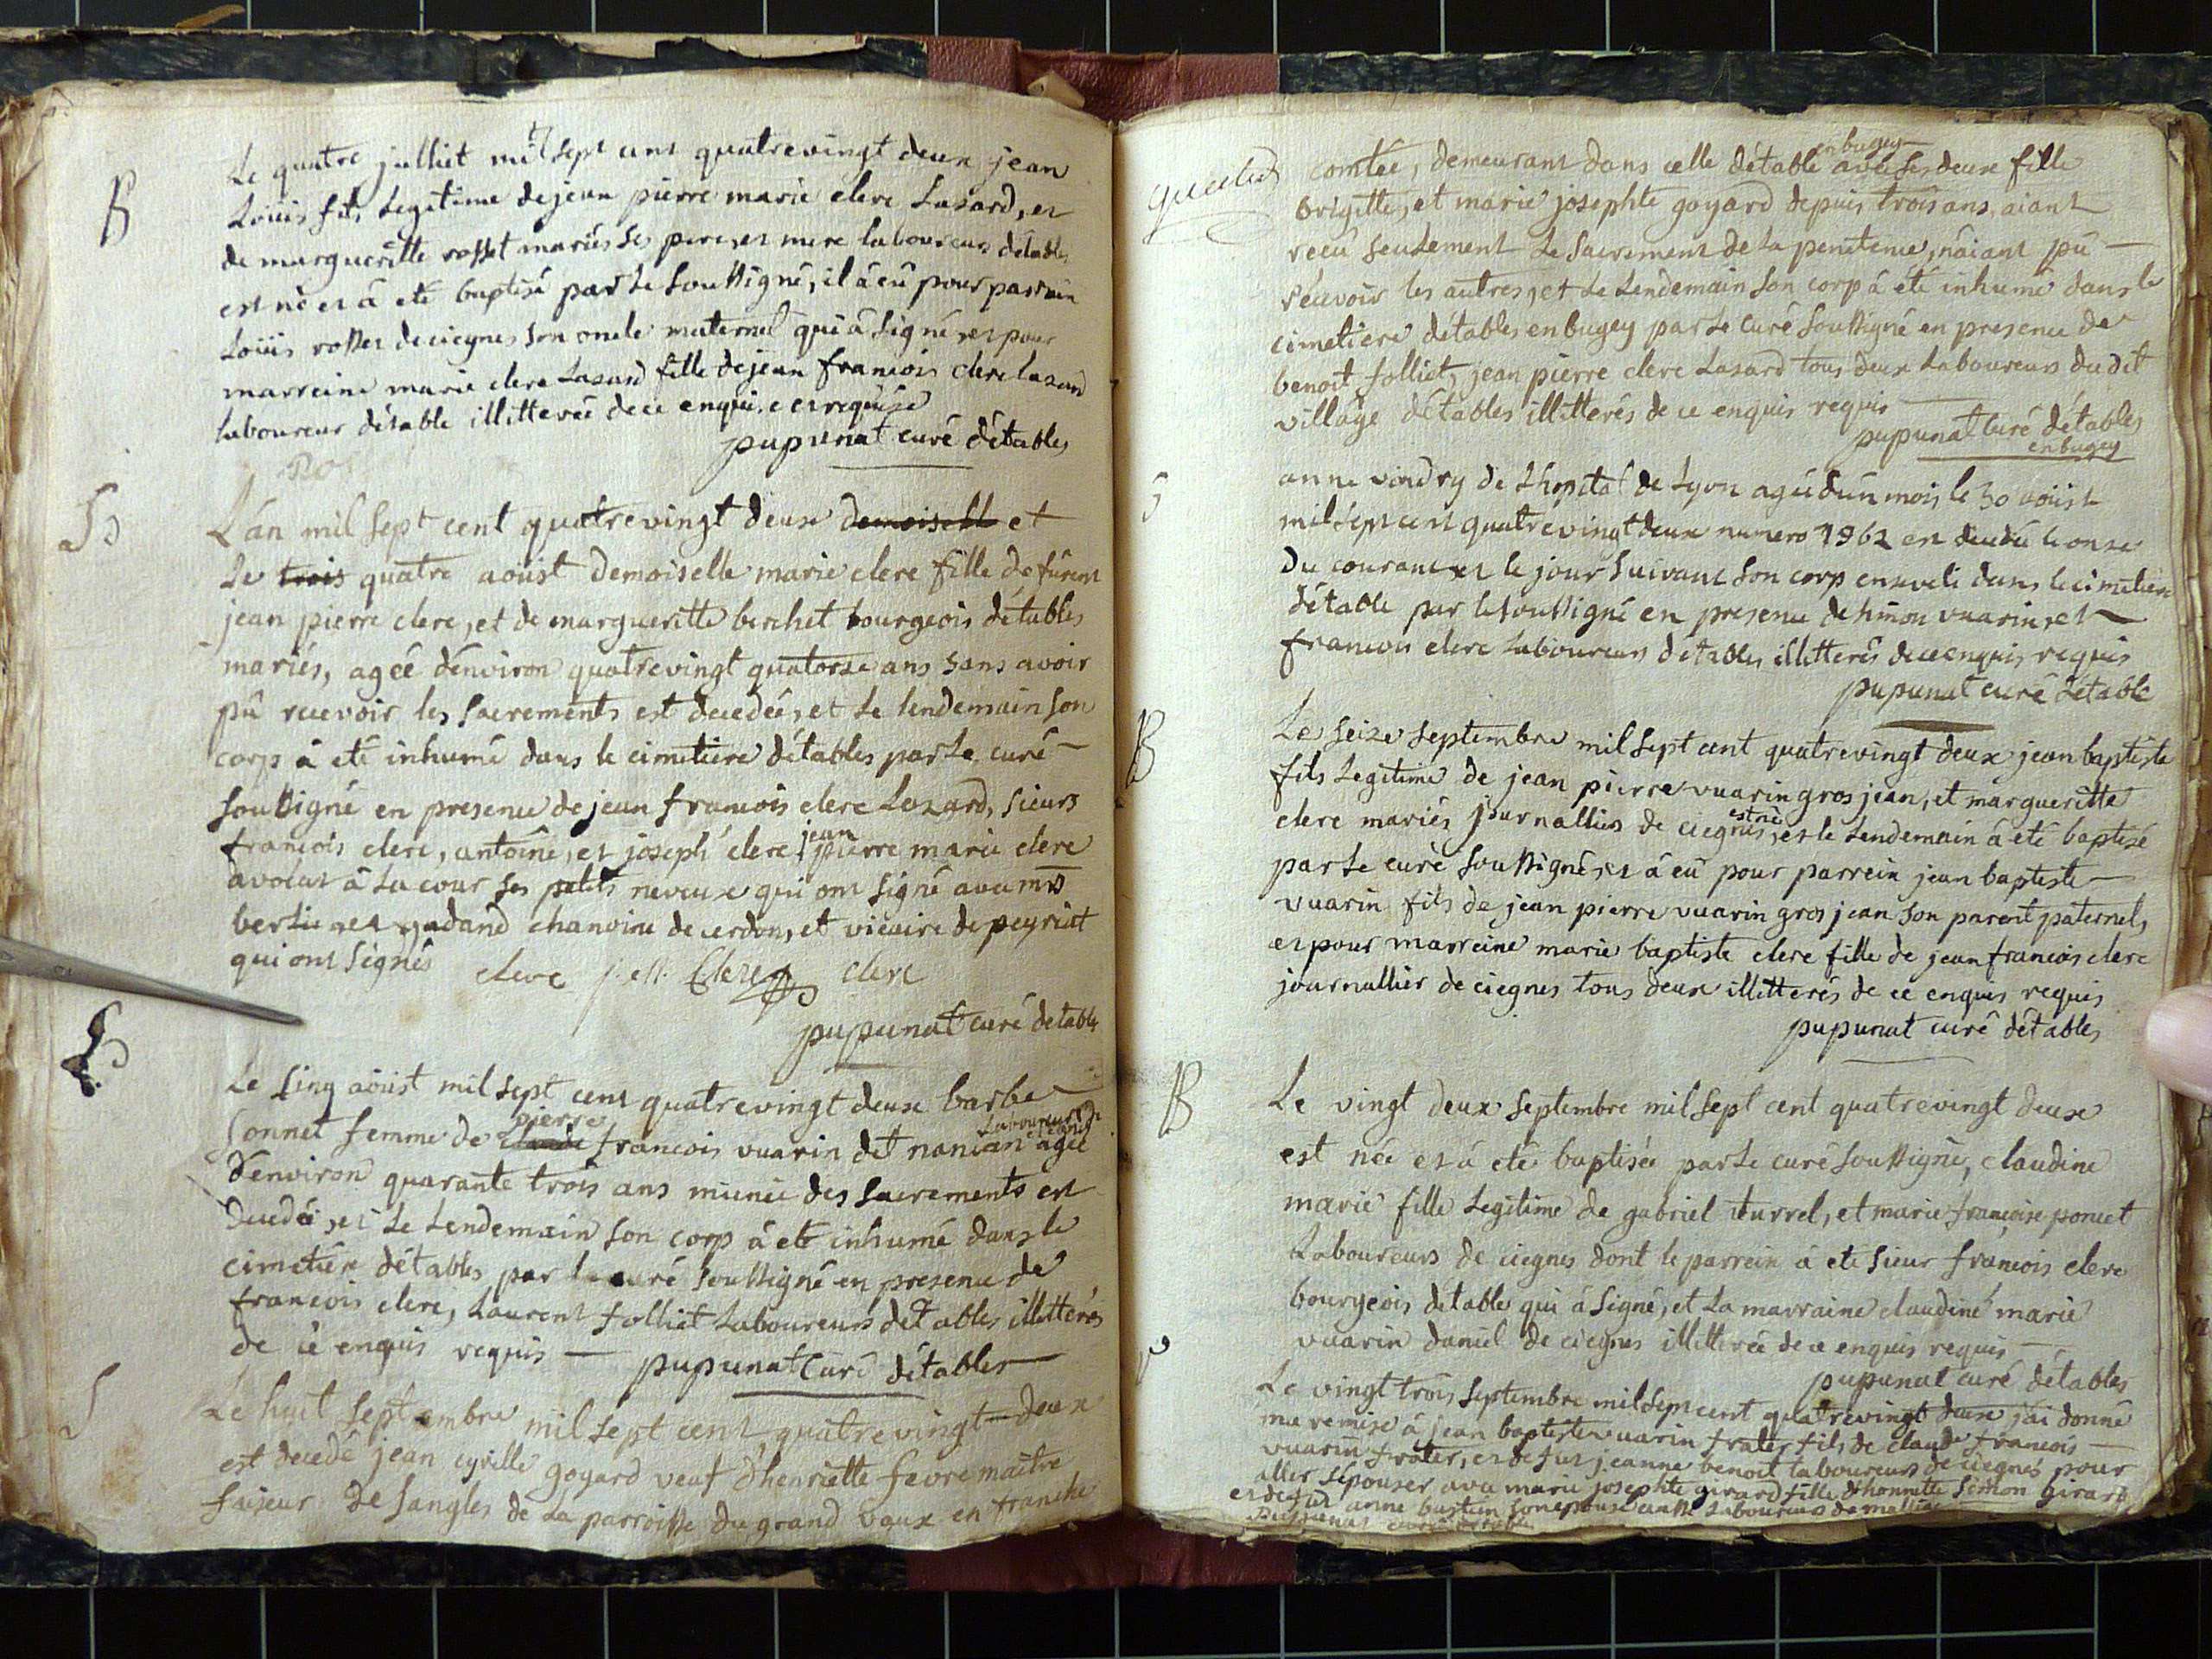 B
Le quatre julliet mil sept ans quatrevingt deux jean
Loüis fils Legitime de jean pierre marie clerc Lasard, et
de margueritte rosset mariés ses pere, et mere laboureurs détables
est né et à eté baptisé par le soussigné, il à eü pour parrain
Loüis rosset de ciegnes son oncle maternel qui à signé, et pour
marreine marie clerc Lasard fille de jean francois clerc lasard
laboureur détable illitterée de ce enquise et requise
pupunat curé détables
S
L'án mil sept cent quatrevingt deux demoiselle et
Le trois quatre aoüst Demoiselle marie clerc fille de fürent
jean pierre clerc, et de margueritte berchet bourgeois détables
mariés, agéé dénviron quatrevingt quatorze ans sans avoir
pû recevoir les sacrements est decedée, et Le lendemain son
corps à eté inhumé dans le cimetiere détables par Le curé
soussigné en presence de jean francois clerc Lazard, sieurs
francois clerc, antoine, et joseph clerc, jean pierre marie clerc
avocat à La cour ses petits neveux qui ont signé avec mrs
berlie et gudand chanoine de cerdons, et vicaire de peyriat
qui ont signés
clerc Clerc clerc
pupunat curé detables
S
Le sinq aoüst mil sept cent quatrevingt deux barbe
sonnet femme de claude pierre francois vuarin dit nanian Laboureurs agée
d'environ quarante trois ans münie des sacrements est
decedée, et Le Lendemain son corp à eté inhumé dans le
cimetiere détables par le curé soussigné en presence de
francois clerc, Laurent folliet Laboureurs détables illitterés
de ce enquis requis — pupunat Curé détables
S
Le huit septembre mil sept cent quatrevingt deux
est decedé jean cyrille goyard veuf d'henriette fevre maitre
faiseur de sangles de La parroisse du grand vaux en franche
comtée, demeurant dans celle détable en bugey avec ses deux fille
brigitte, et marie josephte goyard depuis trois ans, aiant
recü seulement Le sacrement de La penitence, náiant pû
récevoir les autres, et Le Lendemain son corp à été inhumé dans le
cimetiere détables en bugey par Le Curé soussigné en presence de
benoit folliet, jean pierre clerc Lasard tous deux Laboureurs du dit
village détables illitterés de ce enquis requis
pupunat curé détables
en bugey
S
anne vondry de L'hopital de Lyon agée dün mois, le 30 aoüst
mil sept cent quatrévingt deux numero 1962 est decedée le onze
du courant et le jour suivant son corp enseveli dans le cimetiere
détable par le soussigné en presence de simon vuarin, et
francois clerc Laboureurs détables illitterés de ce enquis, requis
pupunat curé détable
B
Le seize septembre mil sept cent quatrevingt deux jean baptiste
fils Legitime de jean pierre vuarin gros jean, et margueritte
clerc mariés journalliers de ciegnes est né, et le Lendemain à eté baptisé
par Le curé soussigné, et à eü pour parrein jean baptiste
vuarin fils de jean pierre vuarin gros jean son parent paternel,
et pour marreine marie baptiste clerc fille de jean francois clerc
journallier de ciegnes tous deux illitterés de ce enquis requis
pupunat curé détables
B
Le vingt deux septembre mil sept cent quatrévingt deux
est née et à eté baptisée par Le curé soussigné, claudine
marie fille Legitime de gabriel turrel, et marie francoise poncet
Laboureurs de ciegnes dont le parrein à eté sieur francois clerc
bourgeois détables qui à signé, et La marraine claudine marie
vuarin daniel de ciegnes illitterée de ce enquis requis
pupunat curé détables
Le vingt trois septembre mil sept cent quatrevingt deux jái donné
ma remise à jean baptiste vuarin frater fils de claude francois
vuarin frater, et de fut jeanne benoit laboureurs de ciegnes pour
aller sépouser avec marie josephte girard fille d'honnette simon girard
et de fut anne bastin son epouse aussi Laboureurs de
pupunat curé détables